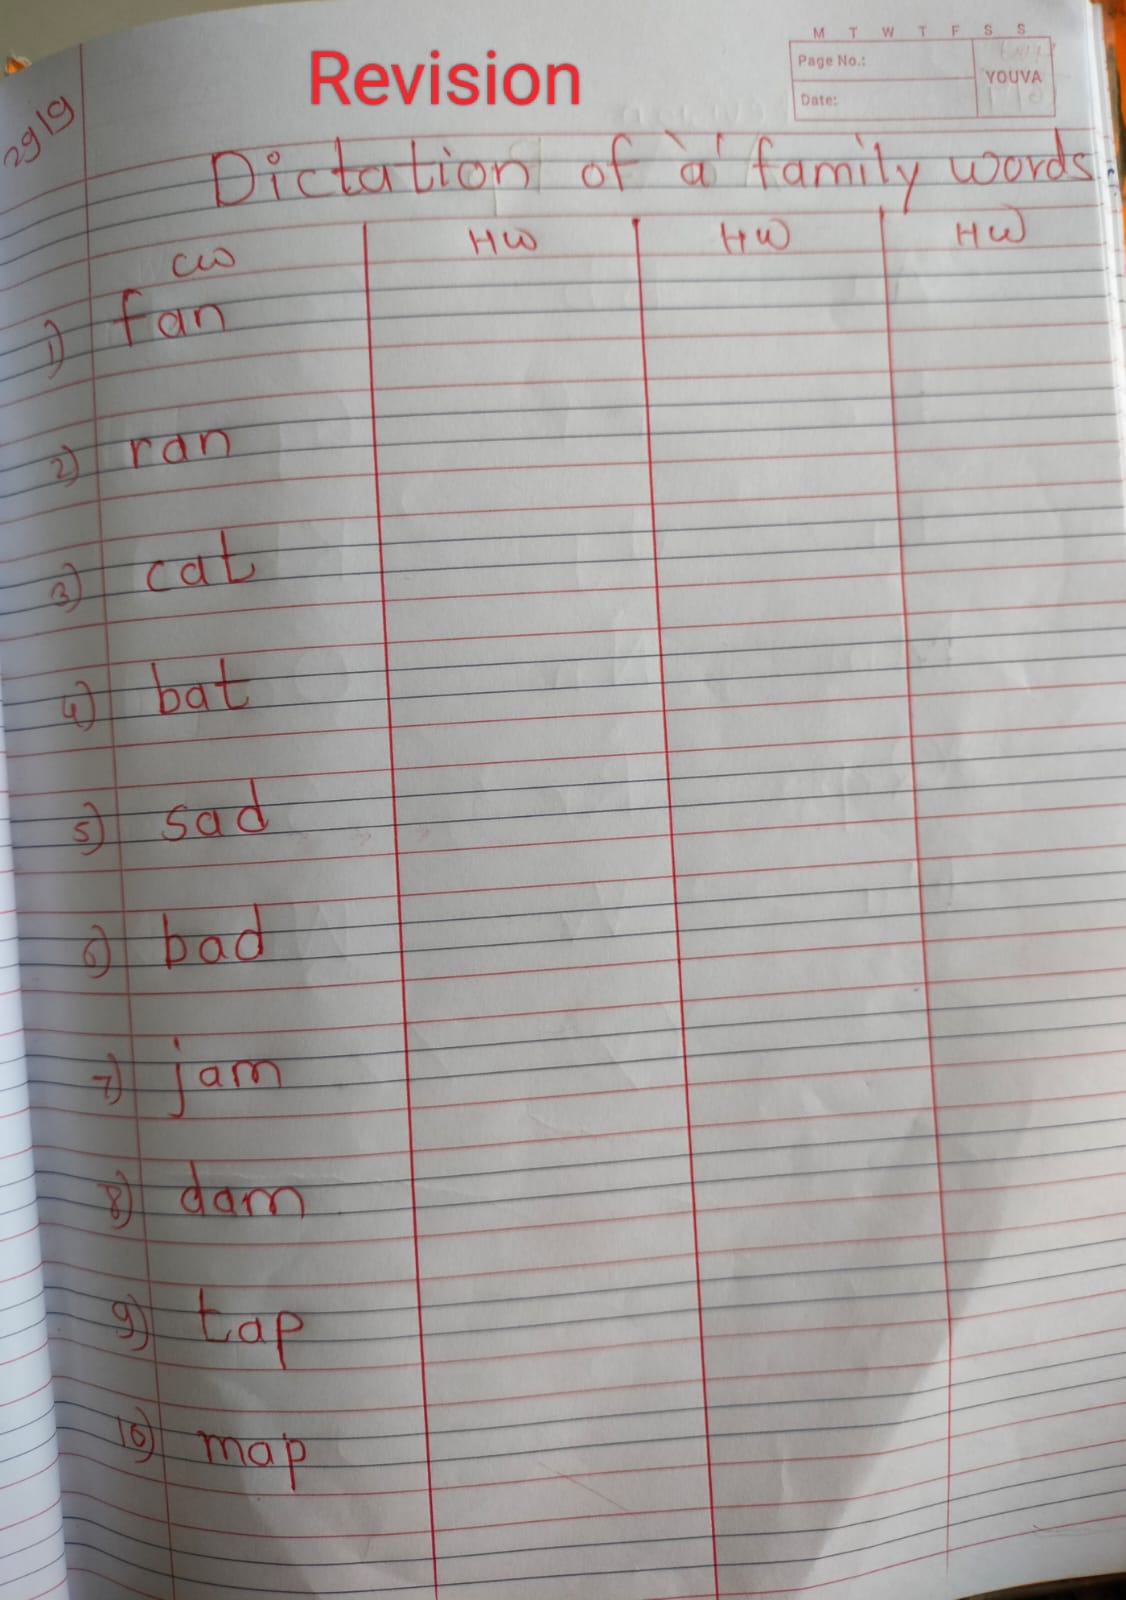 M T W T F S S
Revision
Page No.:
YOUVA
Date:
29/9
Dictation of 'a' family words
CW HW HW HW
1) fan
2) ran
3) cat
4) bat
5) sad
6) bad
7) jam
8) dam
9) tap
10) map